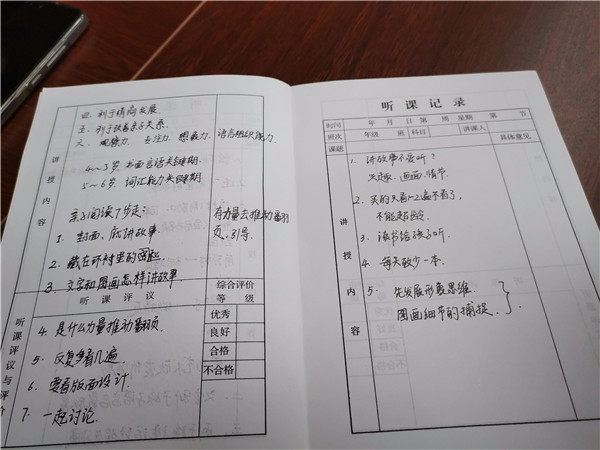 四. 利于情商发展.
五. 利于改善亲子关系.
六. 观察力. 专注力. 想象力. 语言组织能力.
4~5岁. 书面言语关键期.
5~6岁. 词汇能力关键期
讲授内容
亲子阅读7步走:
1. 封面、底讲故事
2. 藏在环衬里的图画
3. 文字和图画怎样讲故事.
有力量去推动翻页. 引导.
听课评议
综合评价等级
听课评议与评价
4. 是什么力量推动翻页.
5. 反复多看几遍.
6. 要看版面设计.
7. 一起讨论.
优秀
良好
合格
不合格
听课记录
时间 年 月 日 第 周 星期 第 节
班次 年级 班 科目 讲课人
课题 具体意见
讲授内容
1. 讲故事不爱听?
兴趣. 画面. 情节.
2. 买的只看1~2遍不看了.
不能超趟.
3. 读书给孩子听.
4. 每天较少一本.
5. 先发展形象思维.
图画细节的捕捉.